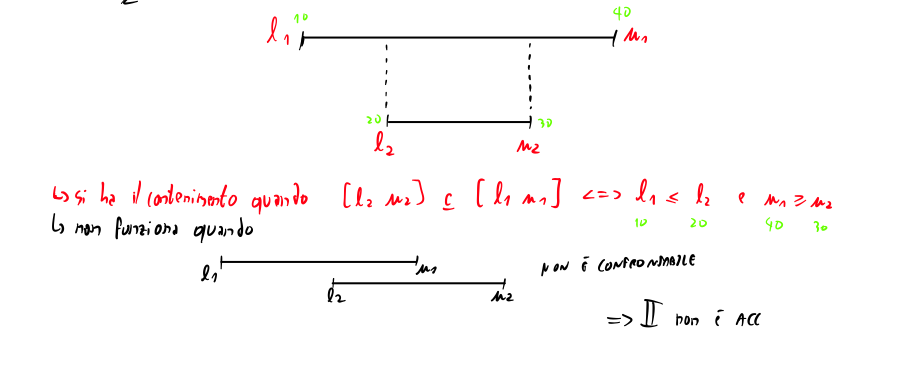 10 40
l₁ u₁
20 30
l₂ u₂
↳ si ha il contenimento quando [l₂ u₂] ⊆ [l₁ u₁] <=> l₁ ≤ l₂ e u₁ ≥ u₂
10 20 40 30
↳ non funziona quando
l₁ u₁ NON È CONFRONTABILE
l₂ u₂
=> II non è ACC